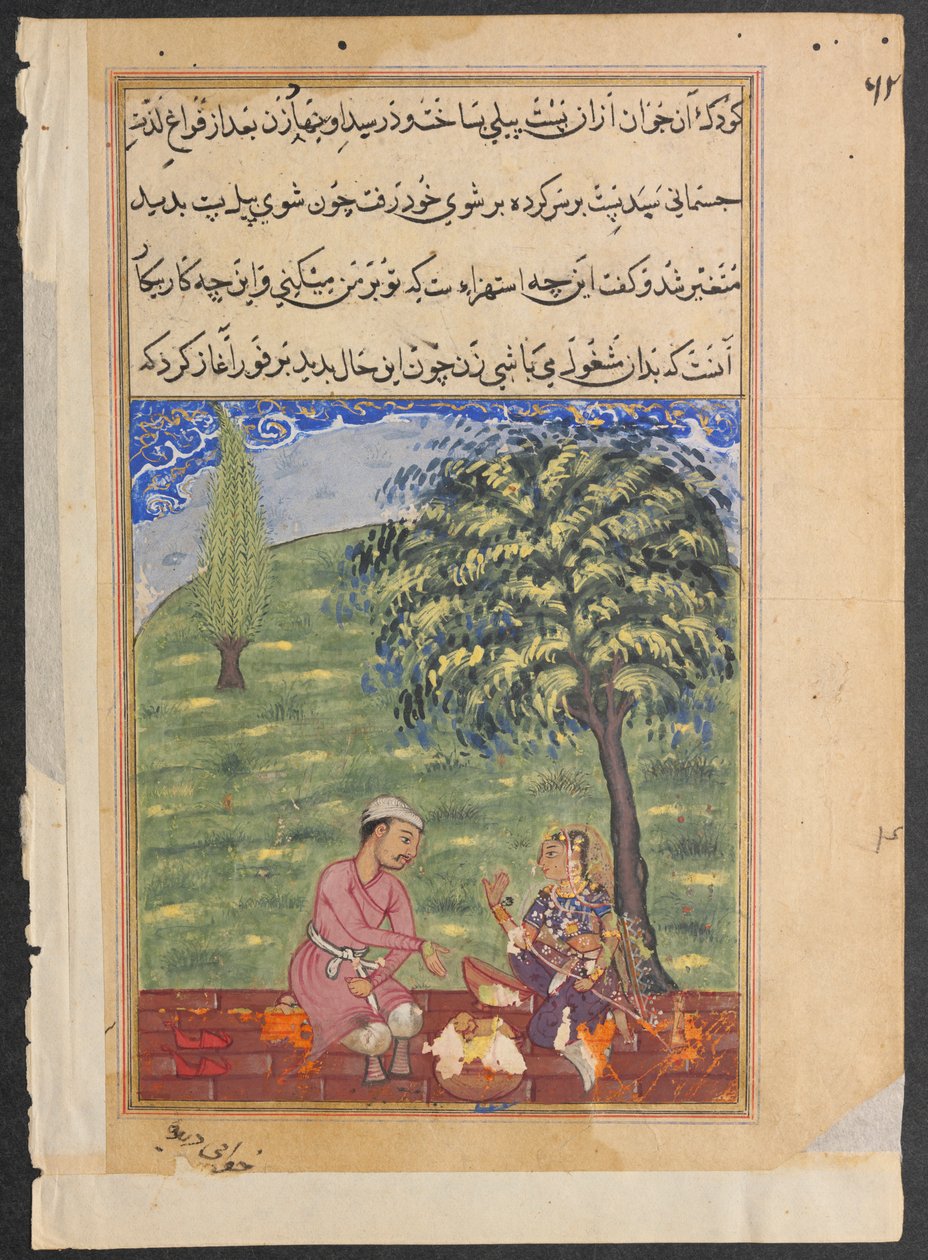 ۶۲
کودک آن جوان ازان پِنِسْت پیلی بساخت و در سید او بنهاد زن بعد از فراغ لذت
جسمانی سید پِنِسْت بر سر کرده بر شوی خود رفت چون شوی پیل پست بدید
متغیر شد و گفت این چه استهزاء ست که تو بر من میکنی و این چه کار بیکار
آنست که بدان مشغول می باشی زن چون این حال بدید بر فور آغاز کرد که